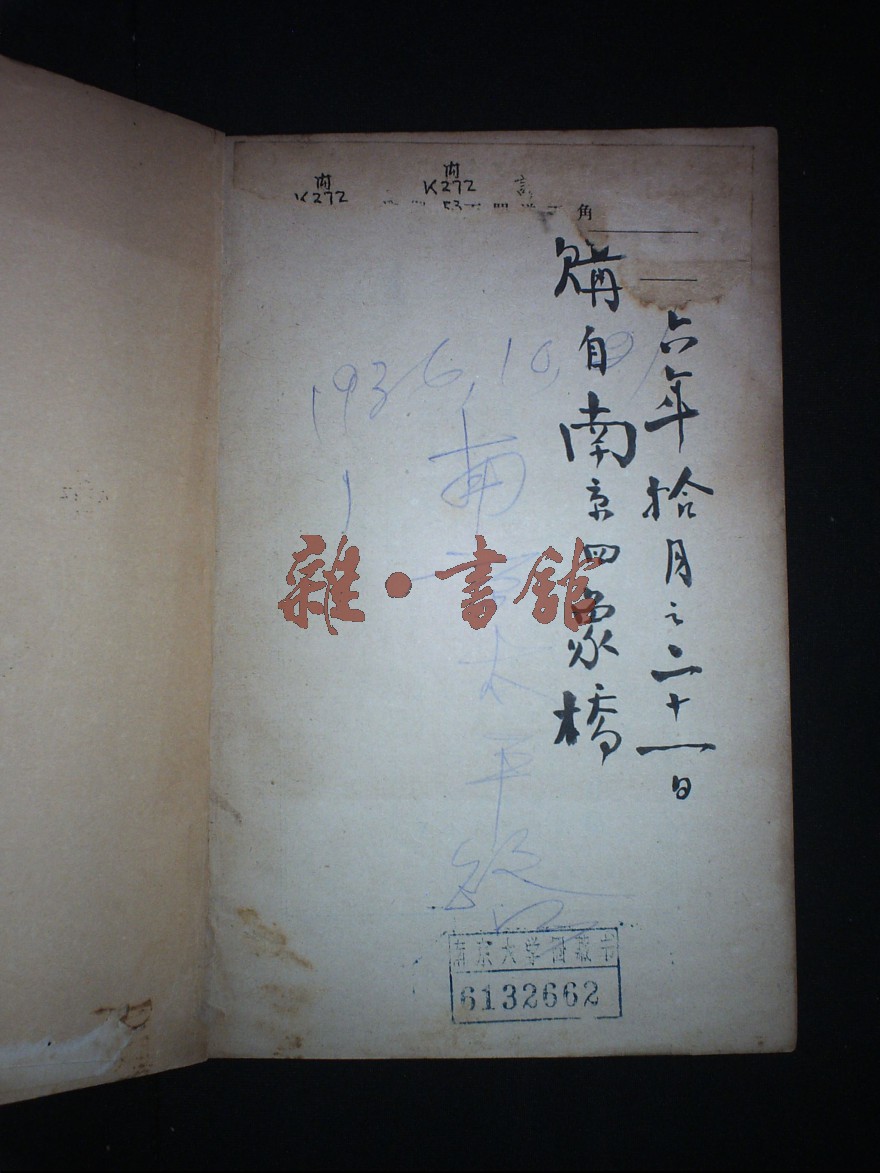 内
K272
内
K272
角
六年拾月之二十一日
購自南京四象橋
1936,10,
南京太平路
雜·書館
南京大学图藏书
6132662